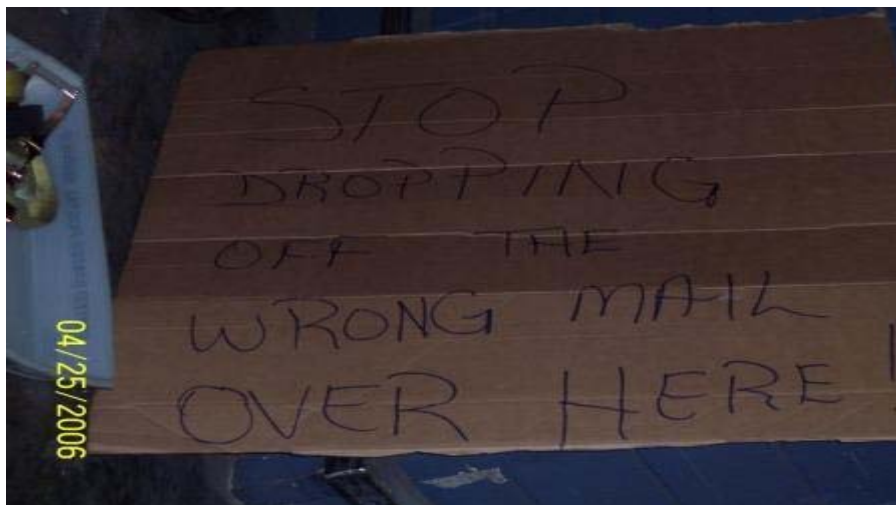 STOP
DROPPING
OFF THE
WRONG MAIL
OVER HERE !
04/25/2006